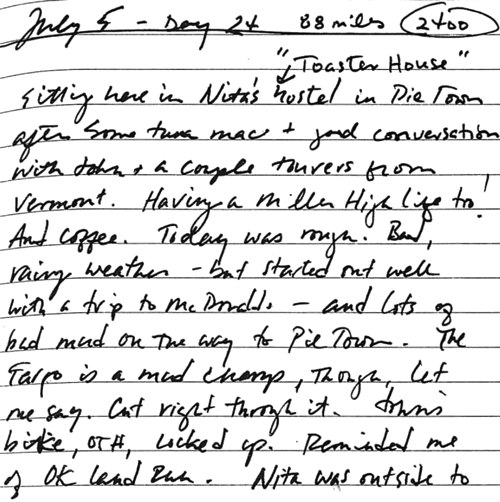 July 5 - Day 24 88 miles 2400
"Toaster House"
Sitting here in Nita's hostel in Pie Town
after some tuna mac + good conversation
with John + a couple tourers from
Vermont. Having a Miller High Life too!
And coffee. Today was rough. Bad,
rainy weather - but started out well
with a trip to McDonalds - and lots of
bad mud on the way to Pie Town. The
Fargo is a mud champ, though, let
me say. Cut right through it. John's
bike, OTH, locked up. Reminded me
of OK Land Run. Nita was outside to